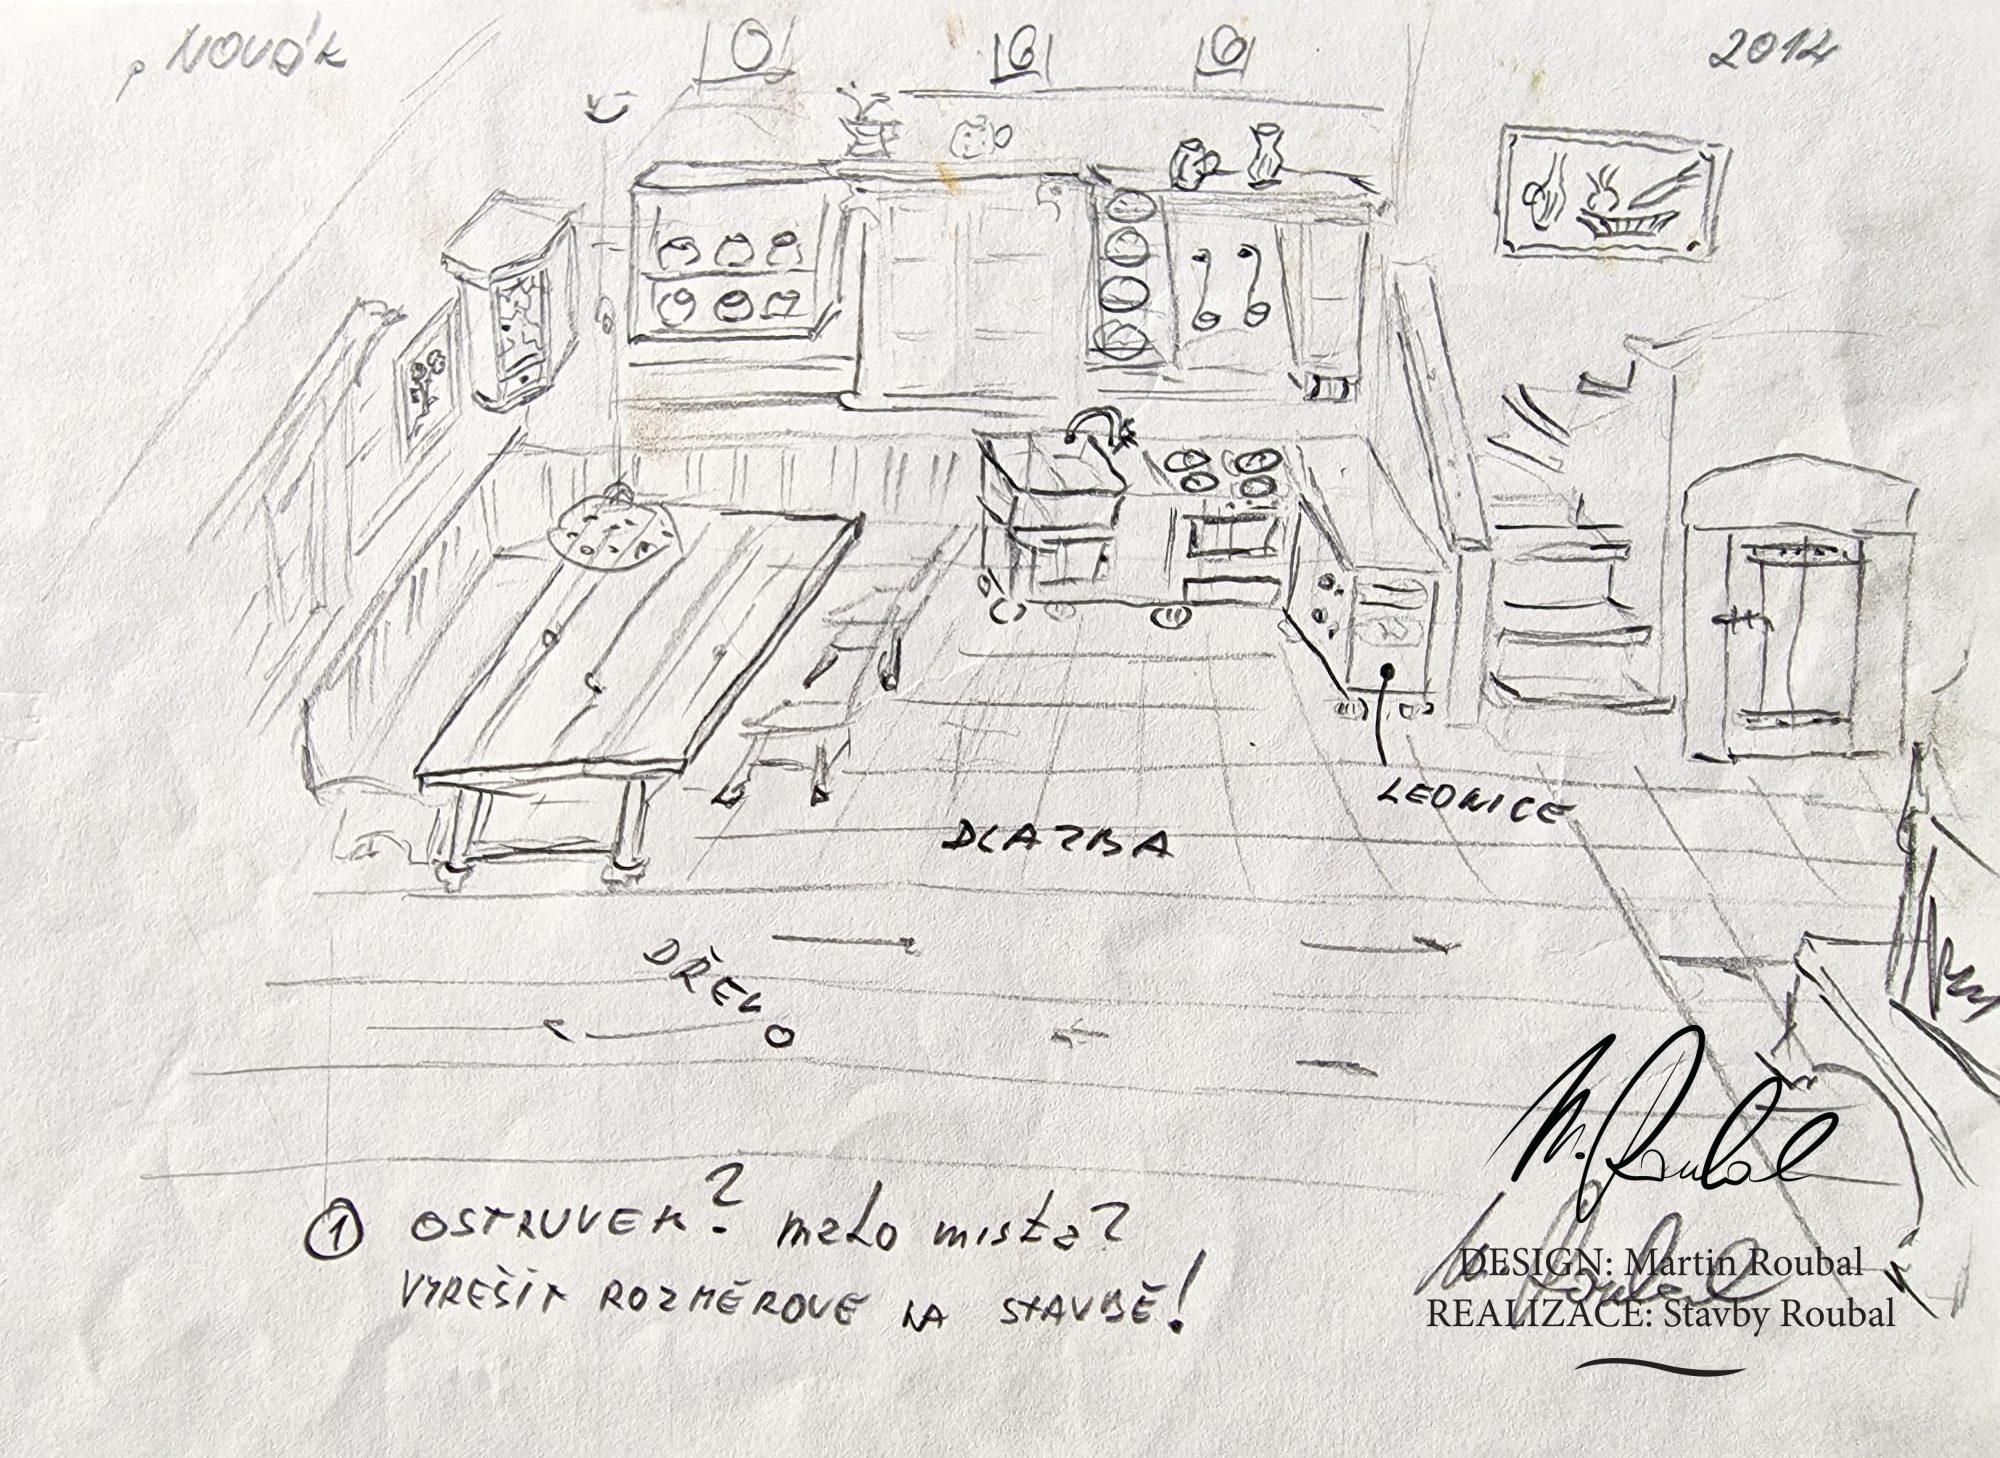 NOVÁK
2014
LEDNICE
DLAŽBA
DŘEVO
① OSTRUVEK? málo místa?
VYŘEŠIT ROZMĚROVE NA STAVBĚ!
M. Roubal
M. Roubal
DESIGN: Martin Roubal
REALIZACE: Stavby Roubal